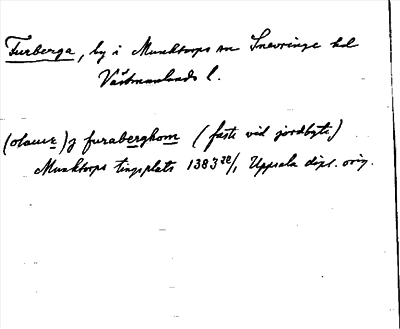 Furberga, by i Munktorps sn Snevringe hd
Västmanlands l.
(olauus) j furaberghom (faste vid jordbyte)
Munktorps tingsplats 1383 22/1 Uppsala dipl. orig.